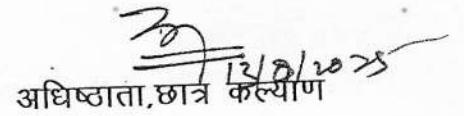 12/8/2025
अधिष्ठाता,छात्र कल्याण